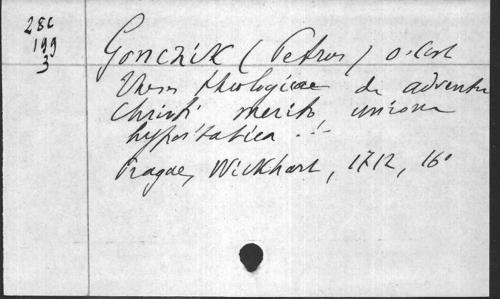 286
199
3
Gonczik (Petrus) o. Cist
Theses theologicae de adventu
Christi merito, unione
hypostatica...
Pragae, Wickhart, 1712, 16°